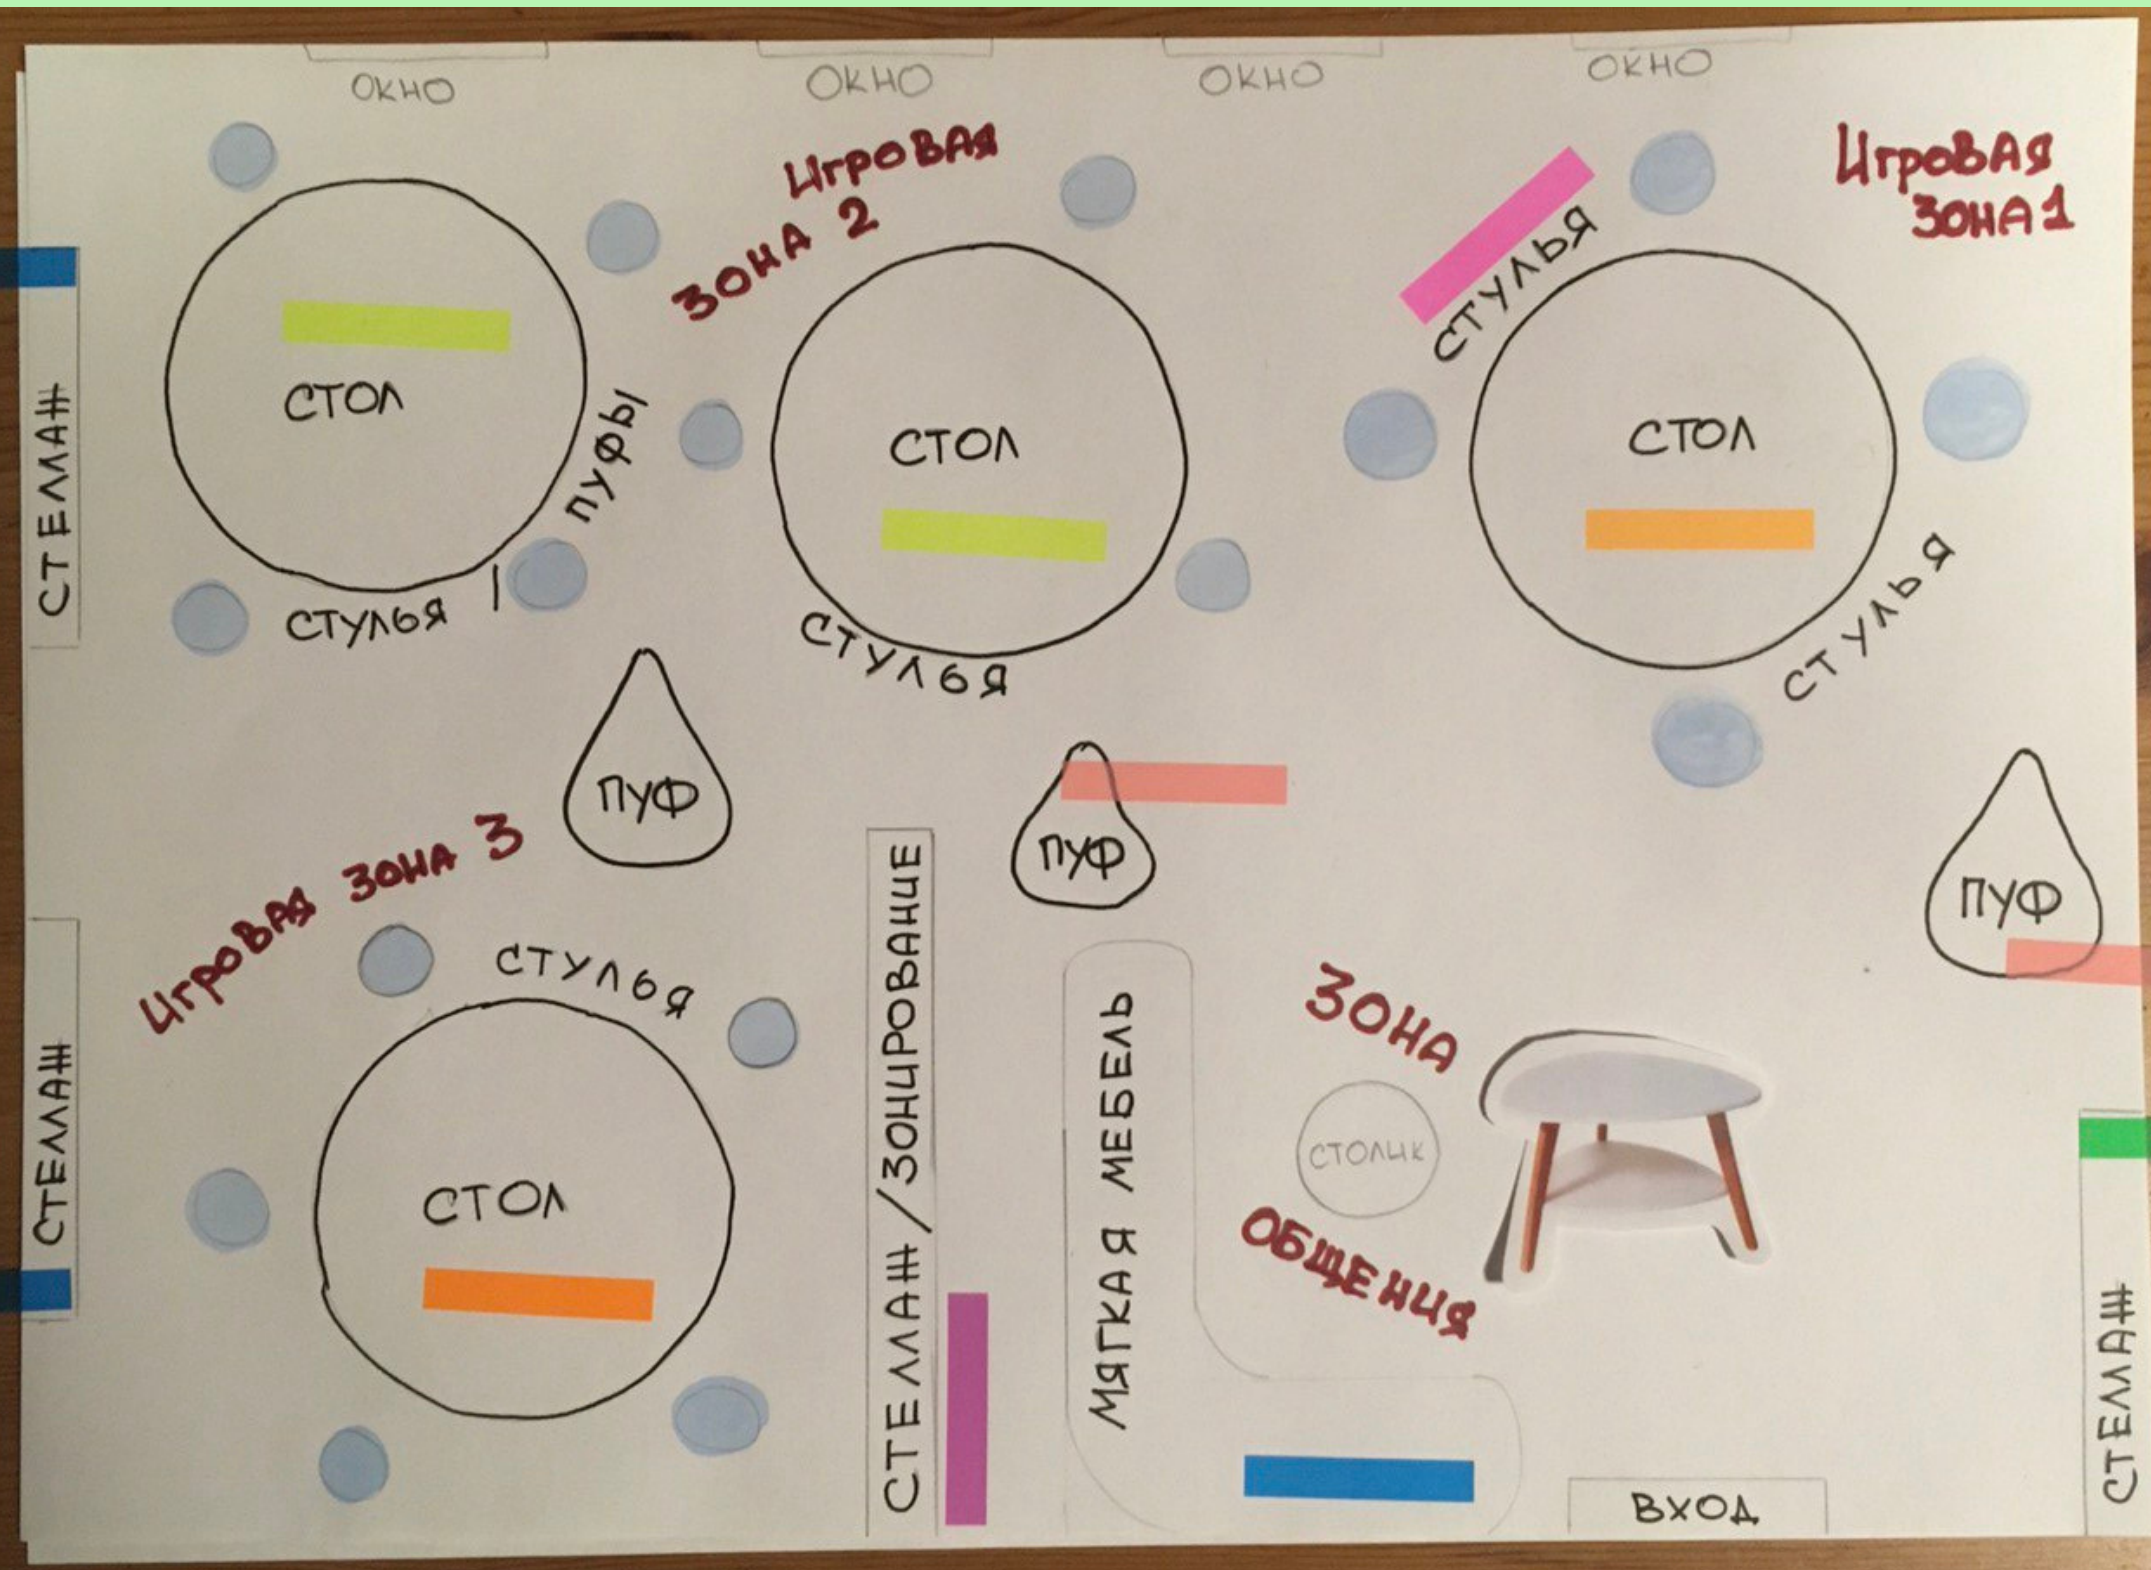 ОКНО
ОКНО
ОКНО
ОКНО
Игровая
зона 2
Игровая
зона 1
СТЕЛЛАЖ
СТОЛ
ПУФЫ
СТУЛЬЯ |
СТОЛ
СТУЛЬЯ
СТУЛЬЯ
СТОЛ
СТУЛЬЯ
ПУФ
ПУФ
ПУФ
Игровая зона 3
СТУЛЬЯ
СТОЛ
СТЕЛЛАЖ
СТЕЛЛАЖ/ЗОНИРОВАНИЕ
МЯГКАЯ МЕБЕЛЬ
ЗОНА
СТОЛИК
ОБЩЕНИЯ
ВХОД
СТЕЛЛАЖ